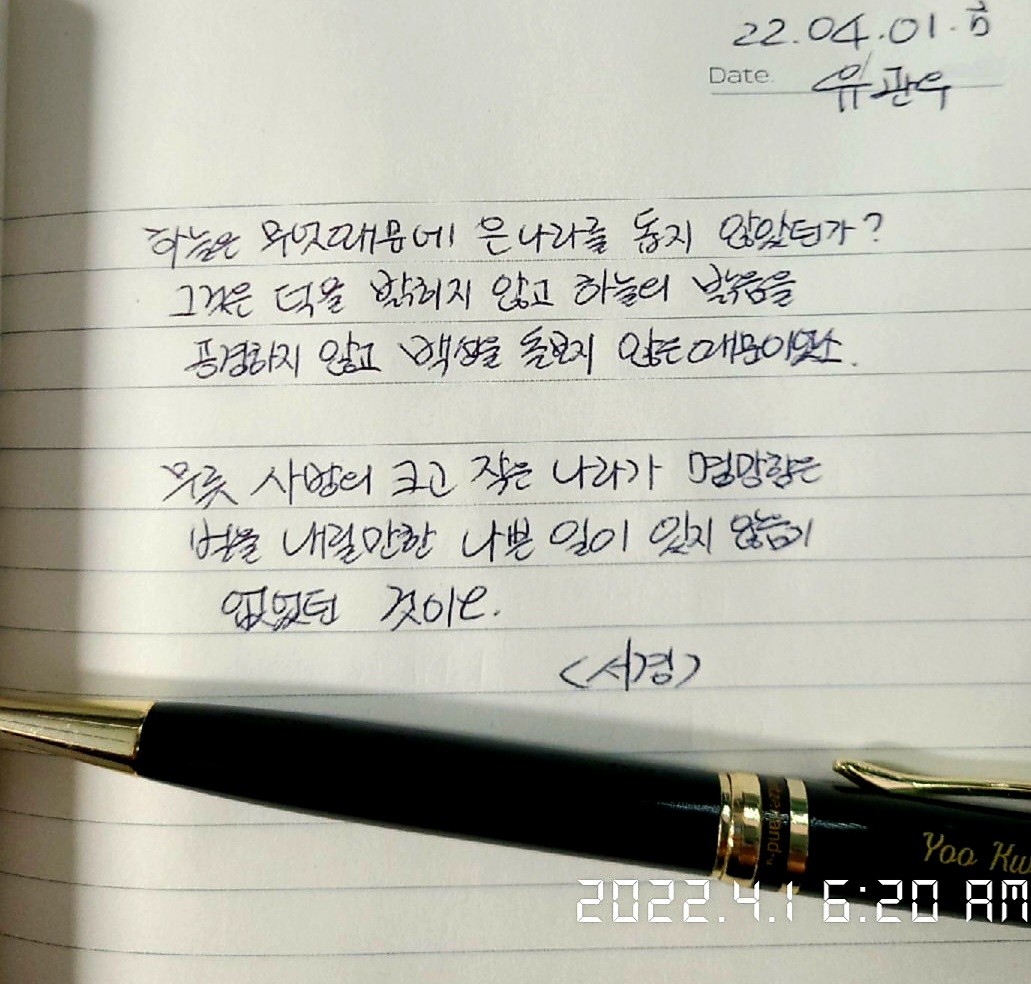 22.04.01.금
Date 유관우
하늘은 무엇때문에 은나라를 돕지 않았던가?
그것은 덕을 밝히지 않고 하늘의 밝음을
공경하지 않고 백성을 돌보지 않은때문이었소.
무릇 사방의 크고 작은 나라가 멸망함은
벌을 내릴만한 나쁜 일이 있지 않음이
없었던 것이오.
<서경>
Yoo Kw
2022.4.1 6:20 AM